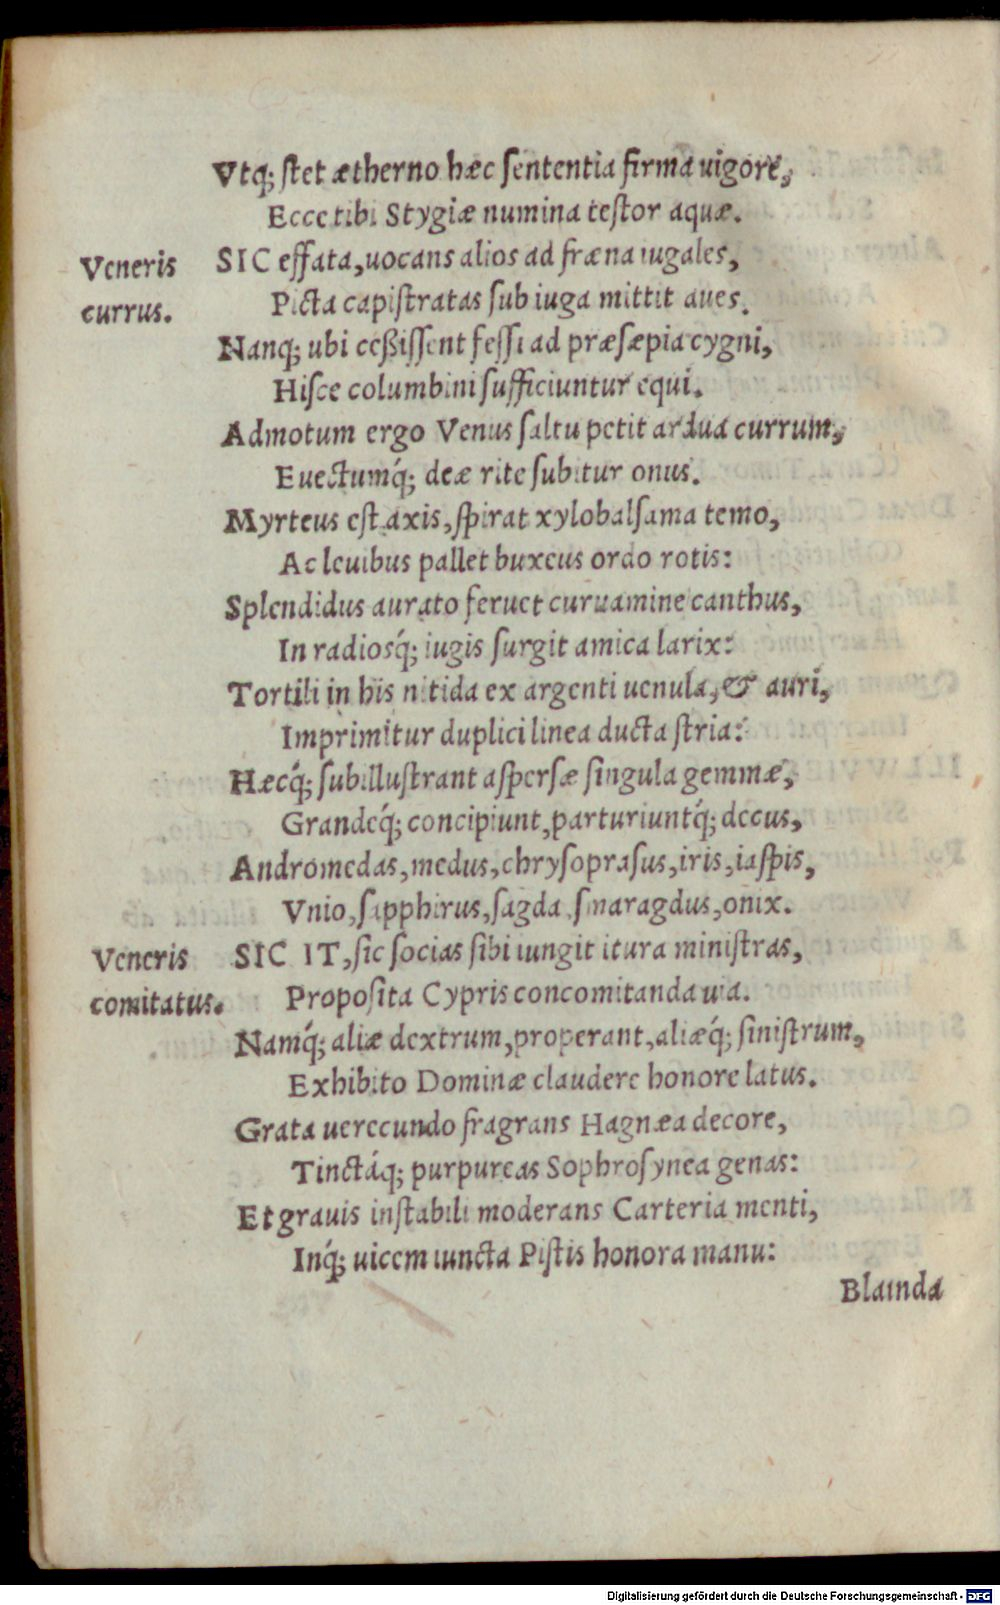 Vtq; stet ætherno hæc sententia firma uigore,
Ecce tibi Stygiæ numina testor aquæ.
Veneris currus.
SIC effata, uocans alios ad fræna iugales,
Picta capistratas sub iuga mittit aues.
Nanq; ubi ceßissent fessi ad præsæpia cygni,
Hisce columbini sufficiuntur equi.
Admotum ergo Venus saltu petit ardua currum,
Euectumq́; deæ rite subitur onus.
Myrteus est axis, spirat xylobalsama temo,
Ac leuibus pallet buxeus ordo rotis:
Splendidus aurato feruet curuamine canthus,
In radiosq́; iugis surgit amica larix:
Tortili in his nitida ex argenti uenula, & auri,
Imprimitur duplici linea ducta stria:
Hæcq́; subillustrant aspersæ singula gemmæ,
Grandeq́; concipiunt, parturiuntq́; decus,
Andromedas, medus, chrysoprasus, iris, iaspis,
Vnio, sapphirus, sagda, smaragdus, onix.
Veneris comitatus.
SIC IT, sic socias sibi iungit itura ministras,
Proposita Cypris concomitanda uia.
Namq́; aliæ dextrum, properant, aliæq́; sinistrum,
Exhibito Dominæ claudere honore latus.
Grata uerecundo fragrans Hagnæa decore,
Tinctáq; purpureas Sophrosynea genas:
Et grauis instabili moderans Carteria menti,
Inq́; uicem iuncta Pistis honora manu:
Blainda
Digitalisierung gefördert durch die Deutsche Forschungsgemeinschaft - DFG